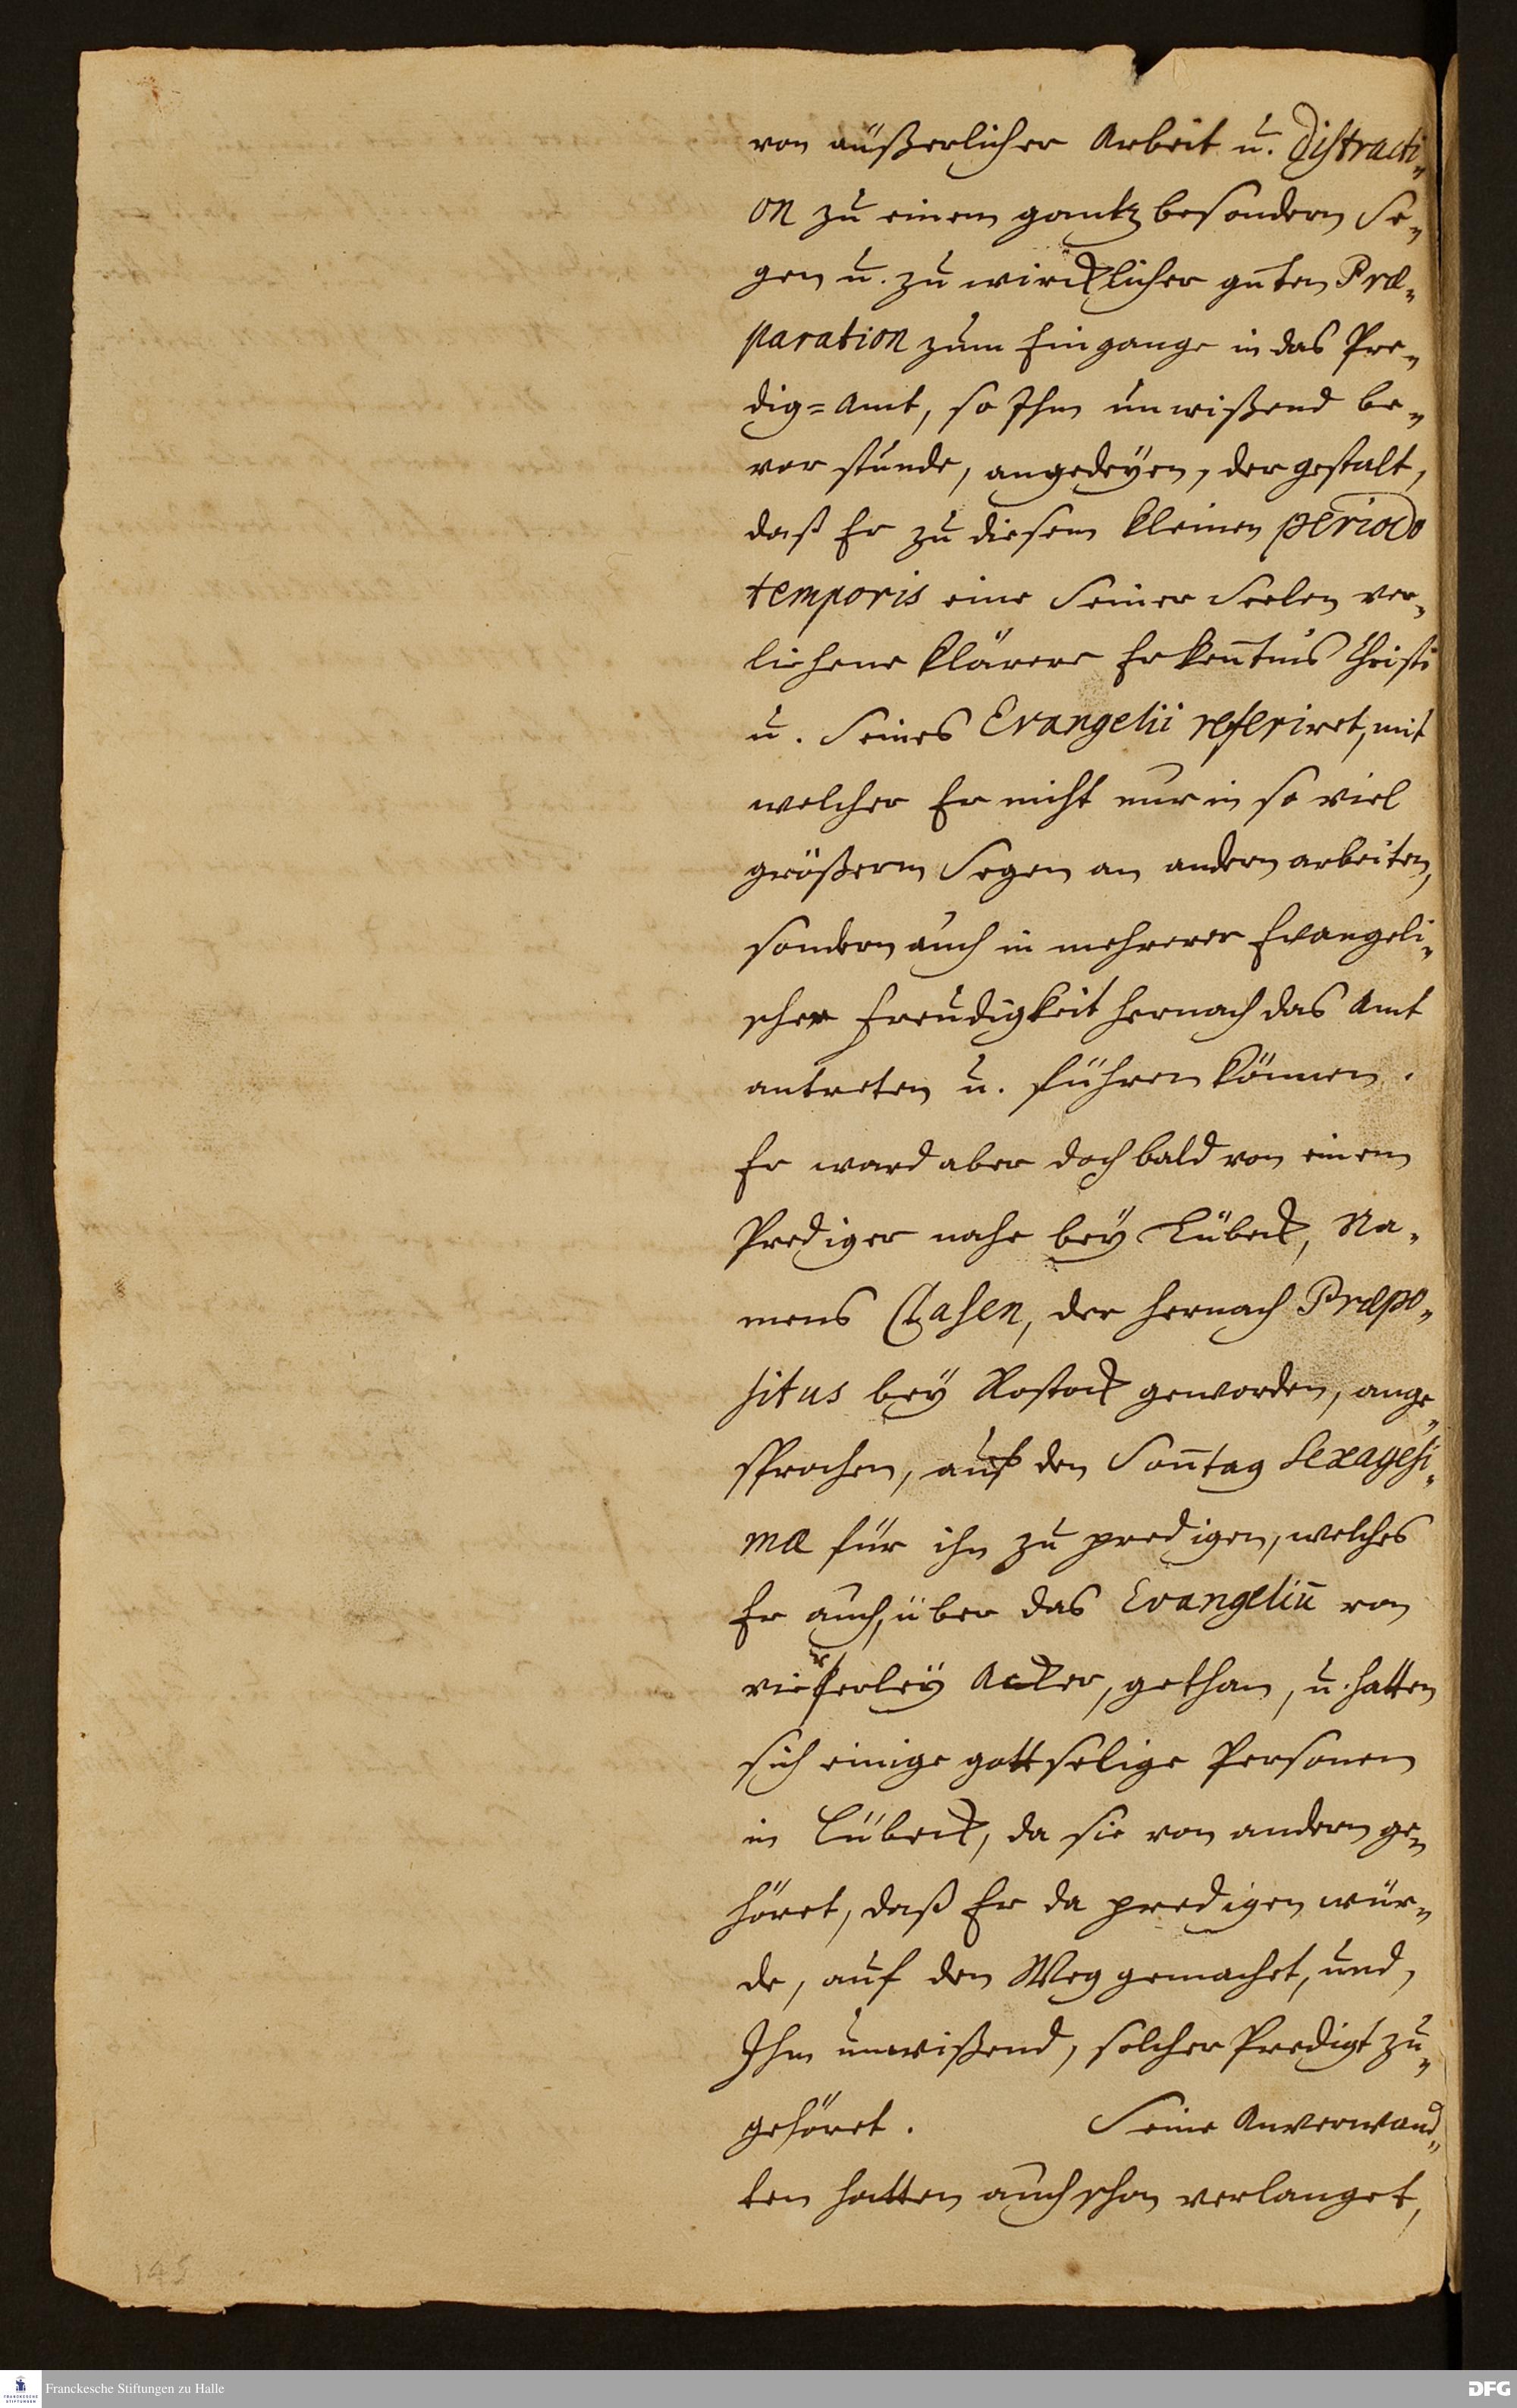 von äußerlicher Arbeit u. Distracti-
on zu einem gantz besondern Se-
gen u. zu wircklicher guten Præ-
paration zum Eingange in das Pre-
dig=Amt, so Ihm unwißend be-
vor stunde, angedeyen, der gestalt,
daß Er zu diesem kleinen periodo
temporis eine Seiner Seelen ver-
liehene klärere Erkentnis Christi
u. Seines Evangelii referiret, mit
welcher Er nicht nur in so viel
größerm Segen an andern arbeiten,
sondern auch in mehrerer Evangeli-
scher Freudigkeit hernach das Amt
antreten u. führen können.
Er ward aber doch bald von einem
Prediger nahe bey Lübeck, Na-
mens Clasen, der hernach Præpo-
situs bey Rostock geworden, ange-
sprochen, auf den Sontag Sexagesi-
mæ für ihn zu predigen, welches
Er auch, über das Evangeliu von
vierерley Acker, gethan, u. hatten
sich einige gottselige Personen
in Lübeck, da sie von andern ge-
höret, daß Er da predigen wür-
de, auf den Weg gemachet, und,
Ihm unwißend, solcher Predigt zu-
gehöret. Seine Anverwand-
ten hatten auch schon verlanget,
145
Franckesche Stiftungen zu Halle
DFG